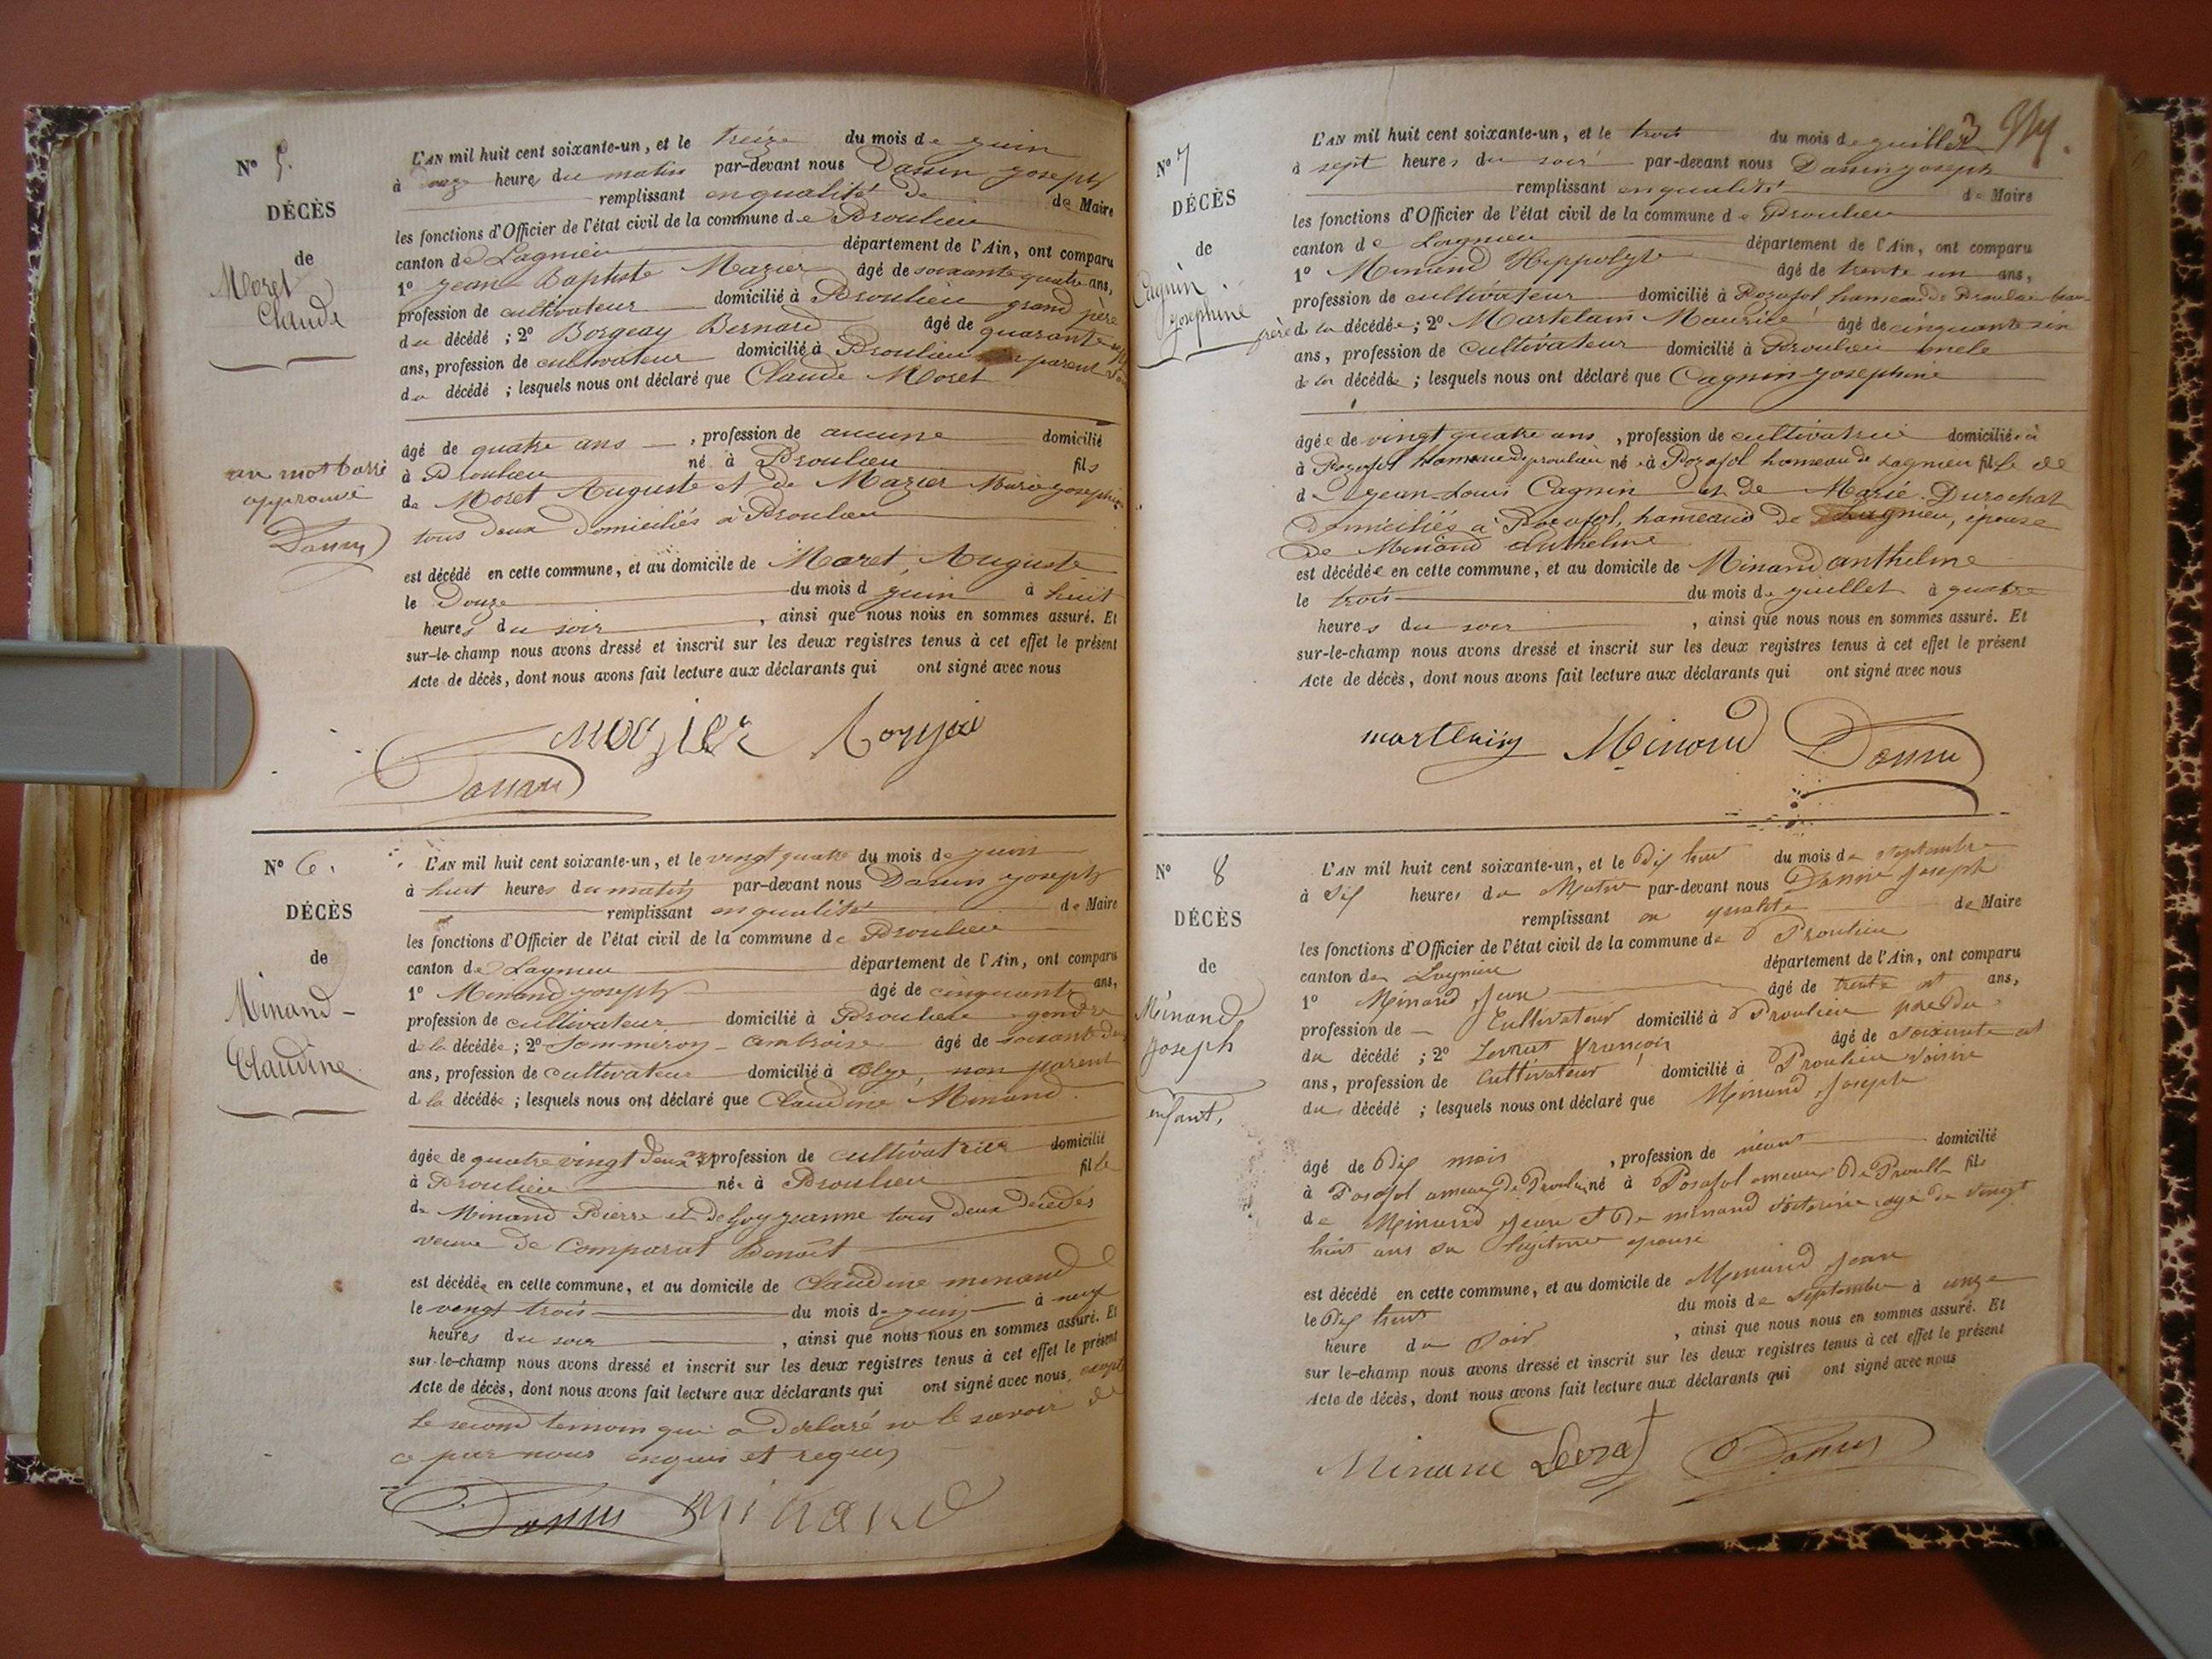 N° 5.
DÉCÈS
de
Moret
Claude
un mot barré
approuvé
Dassin
L'AN mil huit cent soixante-un, et le treize du mois de juin
à onze heures du matin par-devant nous Dassin joseph
remplissant en qualité de de Maire
les fonctions d'Officier de l'état civil de la commune de Proulieu
canton de Lagnieu département de l'Ain, ont comparu
1° jean Baptiste Mazier âgé de soixante quatre ans,
profession de cultivateur domicilié à Proulieu grand père
du décédé ; 2° Borgeay Bernard âgé de quarante
ans, profession de cultivateur domicilié à Proulieu parent
du décédé ; lesquels nous ont déclaré que Claude Moret
âgé de quatre ans , profession de aucune domicilié
à Proulieu né à Proulieu fils
de Moret Auguste et de Mazier Marie josephine
tous deux domiciliés à Proulieu
est décédé en cette commune, et au domicile de Moret, Auguste
le Douze du mois d juin à huit
heures du soir , ainsi que nous nous en sommes assuré. Et
sur-le-champ nous avons dressé et inscrit sur les deux registres tenus à cet effet le présent
Acte de décès, dont nous avons fait lecture aux déclarants qui ont signé avec nous
mazier
Dassin
N° 6.
DÉCÈS
de
Minand-
Claudine
L'AN mil huit cent soixante-un, et le vingt quatre du mois de juin
à huit heures du matin par-devant nous Dassin joseph
remplissant en qualité de Maire
les fonctions d'Officier de l'état civil de la commune de Proulieu
canton de Lagnieu département de l'Ain, ont comparu
1° Minand joseph âgé de cinquante ans,
profession de cultivateur domicilié à Proulieu gendre
de la décédée ; 2° Sommeron - ambroise âgé de soixante
ans, profession de cultivateur domicilié à non parent
d la décédée ; lesquels nous ont déclaré que Claudine Minand.
âgée de quatre vingt deux ans, profession de cultivatrice domicilié
à Proulieu née à Proulieu fille
de Minand Pierre et de Guy jeanne tous deux décédés
veuve de Comparat Benoît
est décédée en cette commune, et au domicile de Claudine minand
le vingt trois du mois de juin à neuf
heures du soir , ainsi que nous nous en sommes assuré. Et
sur-le-champ nous avons dressé et inscrit sur les deux registres tenus à cet effet le présent
Acte de décès, dont nous avons fait lecture aux déclarants qui ont signé avec nous, excepté
le second temoin qui a déclaré ne le savoir de
ce par nous enquis et requis
Dassin Minand
N° 7
DÉCÈS
de
Cagnin
josephine
L'AN mil huit cent soixante-un, et le trois du mois de juillet
à sept heures du soir par-devant nous Dassin joseph
remplissant en qualité de Maire
les fonctions d'Officier de l'état civil de la commune de Proulieu
canton de Lagnieu département de l'Ain, ont comparu
1° Minand Hippolyte âgé de trente un ans,
profession de cultivateur domicilié à Pozafol hameau de Proulieu beau-
frère d la décédée ; 2° Martelain Maurice âgé de cinquante six
ans, profession de cultivateur domicilié à Proulieu oncle
de la décédée ; lesquels nous ont déclaré que Cagnin josephine
âgée de vingt quatre ans , profession de cultivatrice domiciliée à
à Pozafol hameau de proulieu née à Pozafol hameau de Lagnieu fille de
d jean-Louis Cagnin et de Marie Durochat
Domiciliés à Pozafol, hameau de Lagnieu, épouse
de Minand anthelme
est décédée en cette commune, et au domicile de Minand anthelme
le trois du mois de juillet à quatre
heures du soir , ainsi que nous nous en sommes assuré. Et
sur-le-champ nous avons dressé et inscrit sur les deux registres tenus à cet effet le présent
Acte de décès, dont nous avons fait lecture aux déclarants qui ont signé avec nous
Minand Dassin
N° 8
DÉCÈS
de
Minand
joseph
enfant.
L'AN mil huit cent soixante-un, et le Dix huit du mois de septembre
à dix heures du Matin par-devant nous Dassin joseph
remplissant en qualité de Maire
les fonctions d'Officier de l'état civil de la commune de Proulieu
canton de Lagnieu département de l'Ain, ont comparu
1° Minand Jean âgé de trente et ans,
profession de Cultivateur domicilié à Proulieu père du
du décédé ; 2° françois âgé de soixante et
ans, profession de Cultivateur domicilié à Proulieu voisin
du décédé ; lesquels nous ont déclaré que Minand Joseph
âgé de Dix mois , profession de néant domicilié
à Posafol ameaux de Proulieu né à Posafol ameaux De Proull fils
de Minand Jean et De minand victorine agé de vingt
huit ans sa légitime epouse
est décédé en cette commune, et au domicile de Minand Jean
le Dix huit du mois de septembre à onze
heure du Soir , ainsi que nous nous en sommes assuré. Et
sur le-champ nous avons dressé et inscrit sur les deux registres tenus à cet effet le présent
Acte de décès, dont nous avons fait lecture aux déclarants qui ont signé avec nous
Dassin